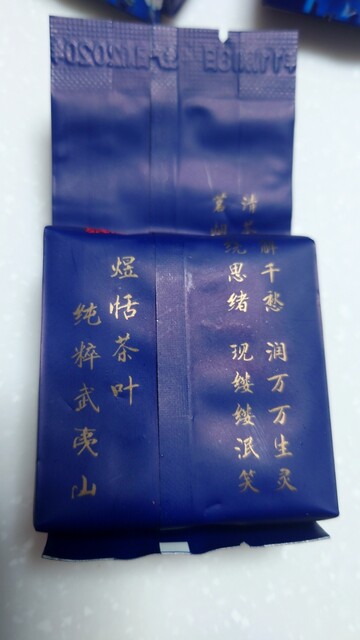 清 千愁 润万万生灵
茗 思绪 现缕缕泯笑
煜恬茶叶
纯粹武夷山